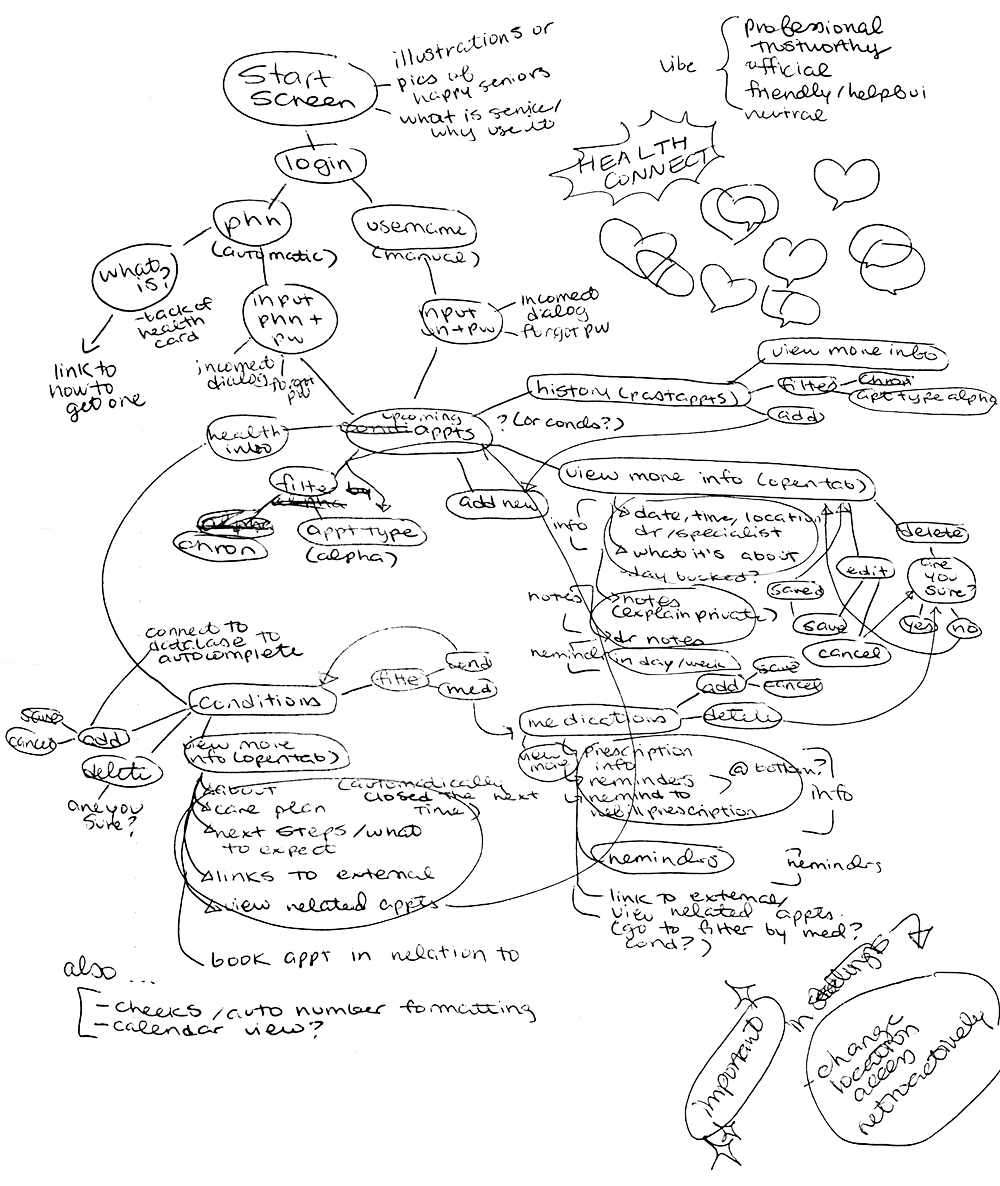 Start
Screen
illustrations or
pics of
happy seniors
what is service/
why use it
vibe
professional
trustworthy
official
friendly/helpful
neutral
HEALTH
CONNECT
login
phn
(automatic)
username
(manual)
what
is?
-back of
health
card
link to
how to
get one
input
phn +
pw
incorrect
dialog
forgot
pw
input
un + pw
incorrect
dialog
forgot pw
history (past appts)
? (or conds?)
view more info
filter
chron
apt type alpha
add
upcoming
appts
health
info
filter
by
alpha
chron
appt type
(alpha)
add new
view more info (open tab)
info
date, time, location
dr/specialist
what it's about
day booked?
notes
notes
(explain private)
dr notes
remind
in day/week
delete
are
you
sure?
yes
no
edit
saved
save
cancel
connect to
database to
autocomplete
conditions
filter
cond
med
save
cancel
add
delete
are you
sure?
view more
info (open tab)
about
(automatically
closed the next
time)
care plan
next steps/what
to expect
links to external
view related appts
book appt in relation to
medications
add
save
cancel
delete
view
more
prescription
info
reminders
remind to
refill prescription
@ bottom?
info
reminders
reminders
link to external/
view related appts.
(go to filter by med?
cond?)
also ...
- checks/auto number formatting
- calendar view?
important
in settings
- change
location
access
retroactively